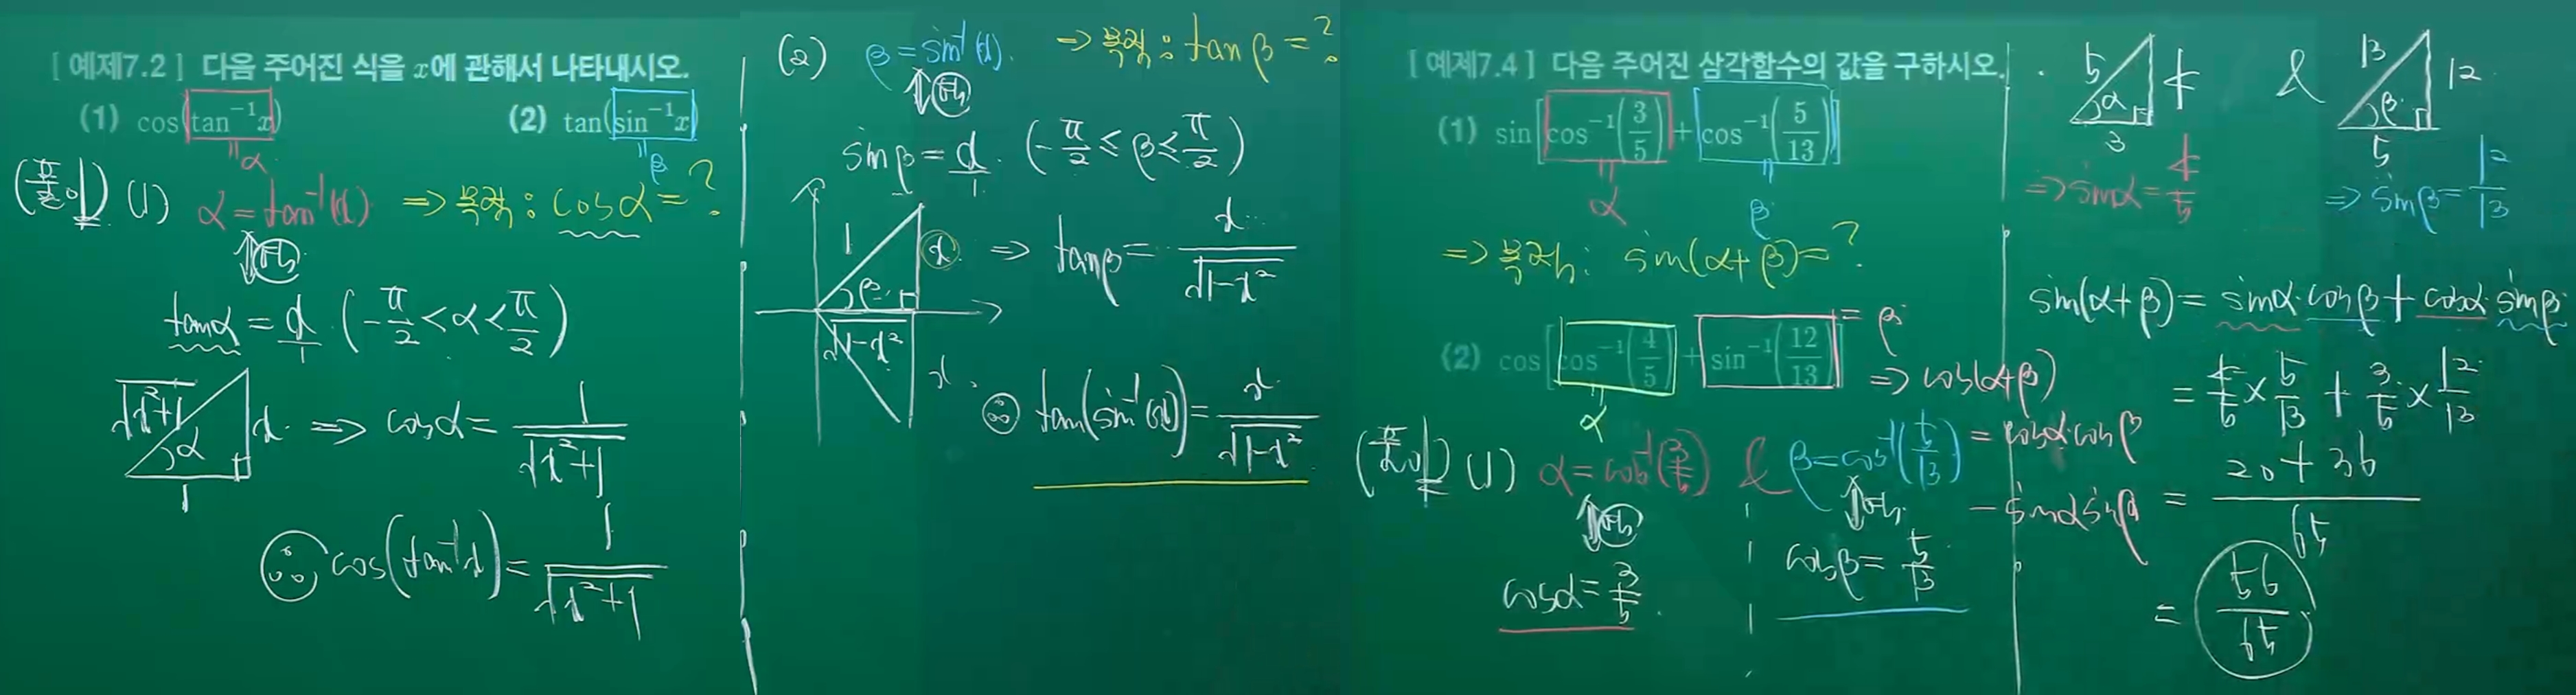 [ 예제7.2 ] 다음 주어진 식을 x에 관해서 나타내시오.
(1) cos(tan⁻¹x) (2) tan(sin⁻¹x)
= α = β
(풀이) (1) α = tan⁻¹(x) ⇒ 목적 : cosα = ?
⇕
tanα = x/1 (-π/2 < α < π/2)
√(x²+1) α x 1 ⇒ cosα = 1/√(x²+1)
∴ cos(tan⁻¹x) = 1/√(x²+1)
(2) β = sin⁻¹(x). ⇒ 목적 : tanβ = ?
⇕
sinβ = x/1 (-π/2 ≤ β ≤ π/2)
1 x β √(1-x²) x ⇒ tanβ = x/√(1-x²)
∴ tan(sin⁻¹(x)) = x/√(1-x²)
[ 예제7.4 ] 다음 주어진 삼각함수의 값을 구하시오.
(1) sin[cos⁻¹(3/5) + cos⁻¹(5/13)]
= α = β
⇒ 목적 : sin(α+β) = ?
(2) cos[cos⁻¹(4/5) + sin⁻¹(12/13)] = β
α ⇒ cos(α+β)
= cosα cosβ
- sinα sinβ
(풀이) (1) α = cos⁻¹(3/5) & β = cos⁻¹(5/13)
⇕ ⇕
cosα = 3/5 cosβ = 5/13
5 α 4 3 & 13 β 12 5
⇒ sinα = 4/5 ⇒ sinβ = 12/13
sin(α+β) = sinα·cosβ + cosα·sinβ
= 4/5 × 5/13 + 3/5 × 12/13
= (20+36)/65
= 56/65